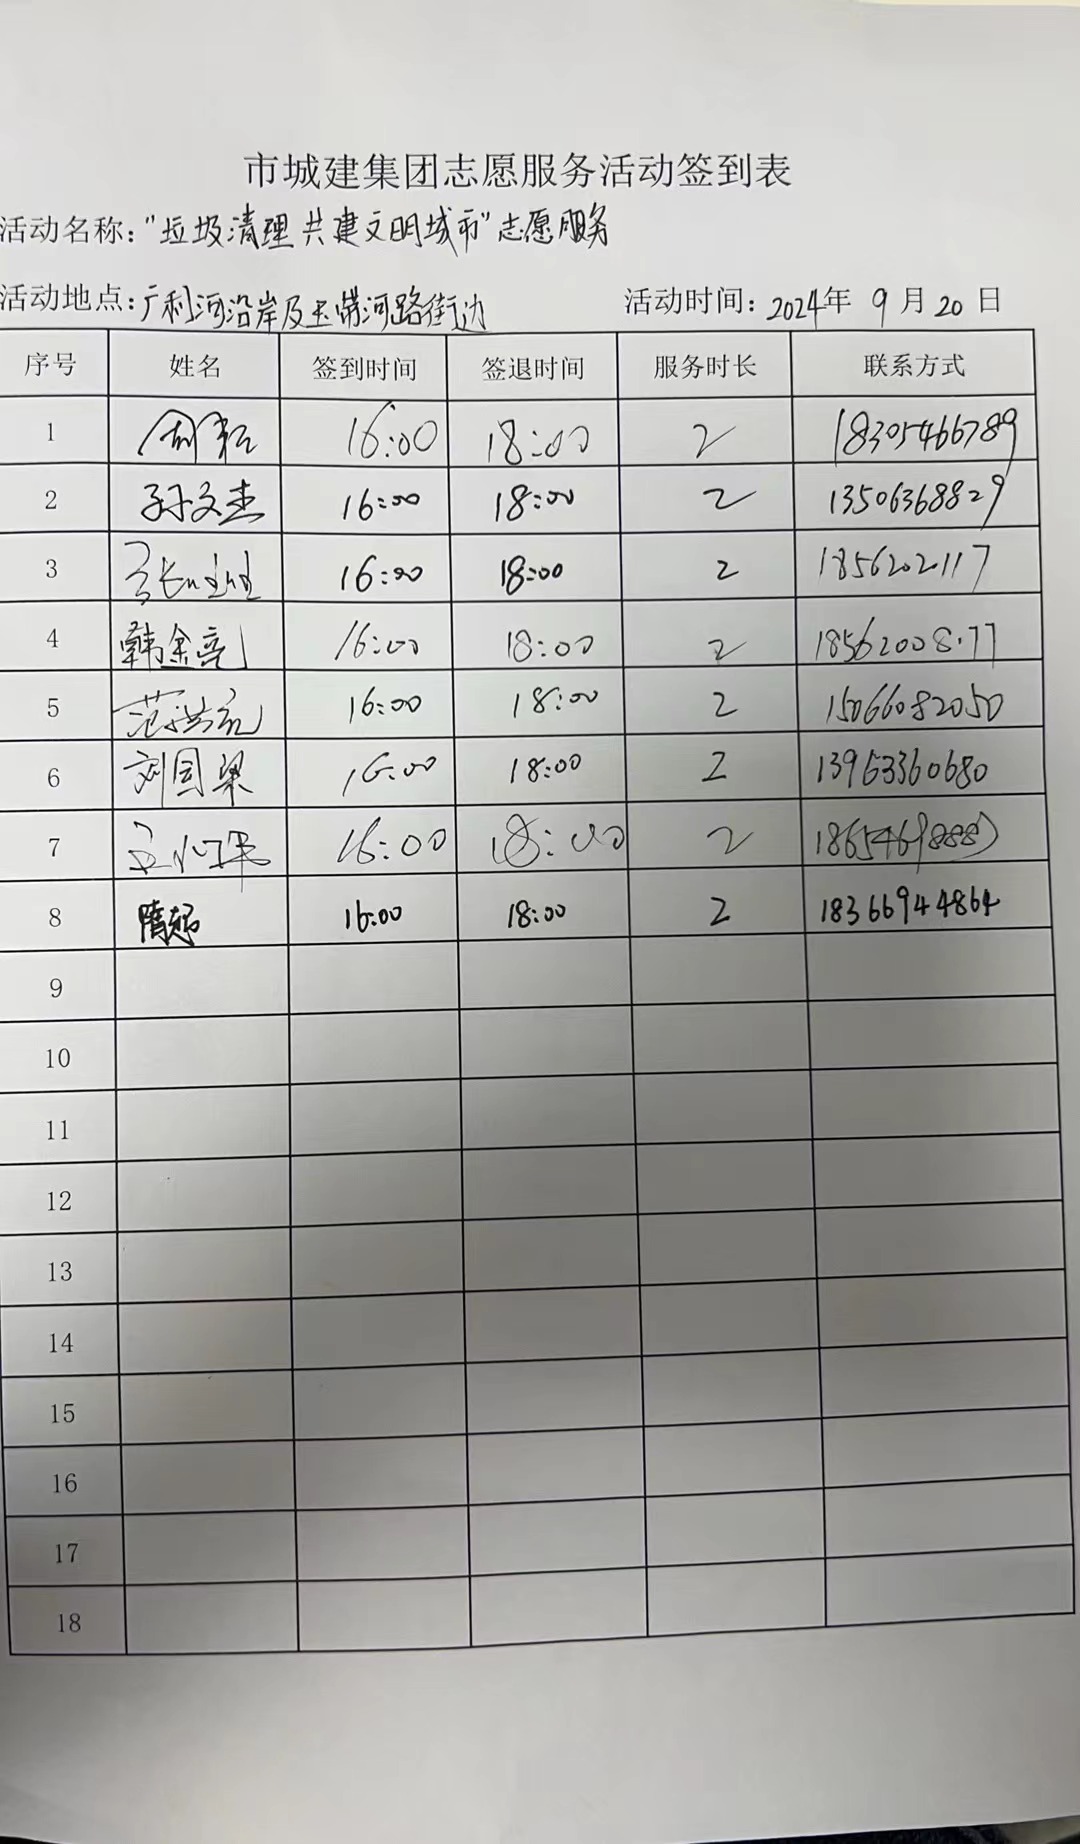 市城建集团志愿服务活动签到表
活动名称："垃圾清理 共建文明城市"志愿服务
活动地点：广利河沿岸及玉带河路街边 活动时间：2024年 9月20日
序号 姓名 签到时间 签退时间 服务时长 联系方式
1 16:00 18:00 2 18305466789
2 孙文杰 16:00 18:00 2 13506368829
3 16:00 18:00 2
4 韩金亮 16:00 18:00 2
5 16:00 18:00 2 15066082050
6 刘国梁 16:00 18:00 2 13963360680
7 16:00 18:00 2
8 隋超 16:00 18:00 2 18366944864
9
10
11
12
13
14
15
16
17
18